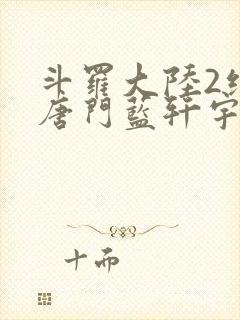 斗羅大陸2絕
唐門藍軒宇
十而